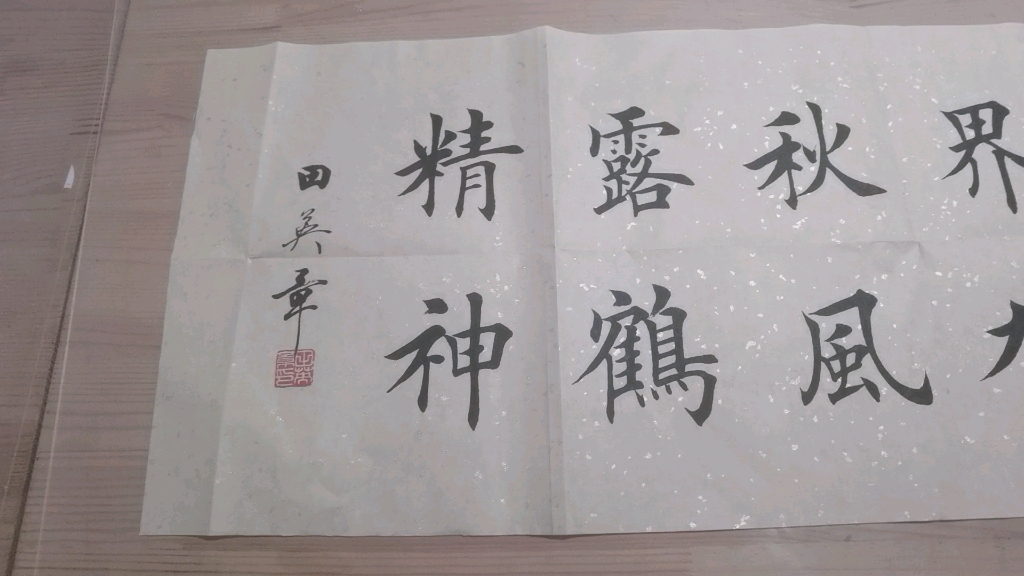 界
秋風
露鶴
精神
田英章